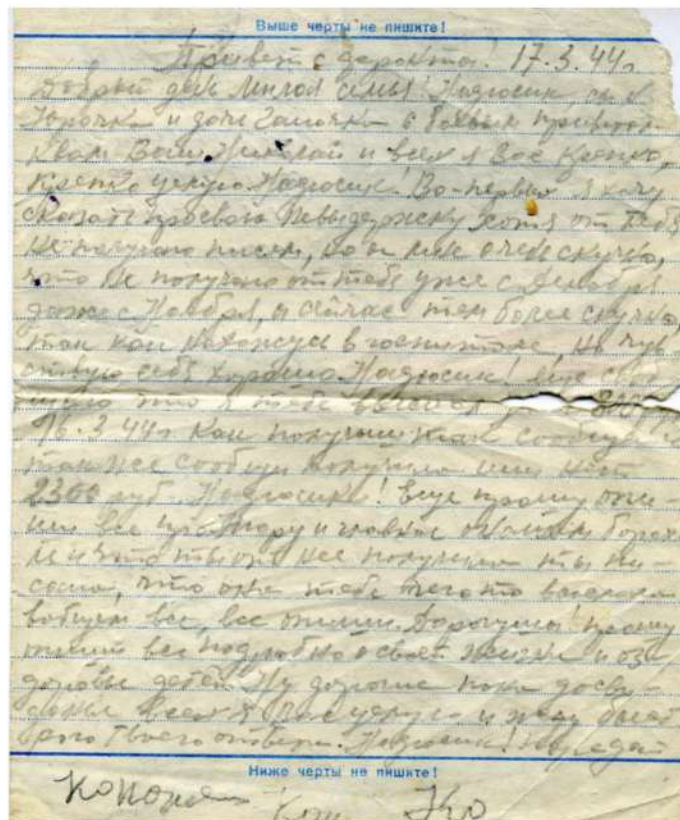 Выше черты не пишите!
Привет с фронта! 17.3.44г
Добрый день милая семья! Надюсик, сын
Юрочка и дочь Галочка с боевым приветом
к вам Ваш Николай и всех я Вас крепко,
крепко целую. Надюсик! Во-первых я хочу
сказать про свою невыдержку хотя от тебя
не получаю писем, но и мне очень скучно,
что не получаю от тебя уже с декабря
даже с Ноября, а сейчас тем более скучно,
так как нахожусь в госпитале, но чув-
ствую себя хорошо. Надюсик! еще сооб-
что я тебе выслал
16.3.44г как получишь так сообщи
также сообщи получила или нет
2300 руб. Надюсик! еще прошу опи-
ши все про и главное
и что ты от нее получила ты пи-
сала, что она тебе чего то
вобщем все, все опиши. Дорогуша! прошу
пиши все подробно о своей жизни и о з-
доровье детей. Ну дорогие пока досви-
дания всех я Вас целую и жду быст-
рого твоего ответа. Надюсик!
Ниже черты не пишите!